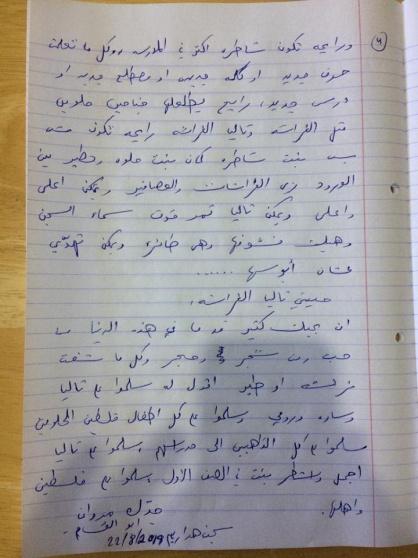 (٦)
ورايحه تكون شاطره اكثر في المدرسه وكل ما تتعلمي
حرف جديد او كلمه جديده او مصطلح جديد او
درس جديد، رايح يطلعلها جناحين حلوين
مثل الفراشه وتاليا الفراشه رايحه تكون مش
بس بنت شاطره كمان بنت حلوه وبطير بين
الورود زي الفراشات والعصافير ويمكن اعلى
واعلى ويمكن تاليا تمر فوق سماء السجن
وهيك نشوفها وهي طايره ويمكن تهدّي
عشان أبوسها ......
حبيبتي تاليا الفراشه،
انا بحبك كثير قد ما في هذه الدنيا من
حب ومن شجر وحجر وكل ما شفت
فراشه او طير اقول له سلموا ع تاليا
وساره ورومي وسلموا ع كل اطفال فلسطين الحلوين
سلموا ع كل الذاهبين الى مدارسهم، سلموا ع تاليا
اجمل واشطر بنت في الصف الاول، سلموا ع فلسطين
واهلها.
جدك مروان
ابو القسام
سجن هداريم 22/8/2019